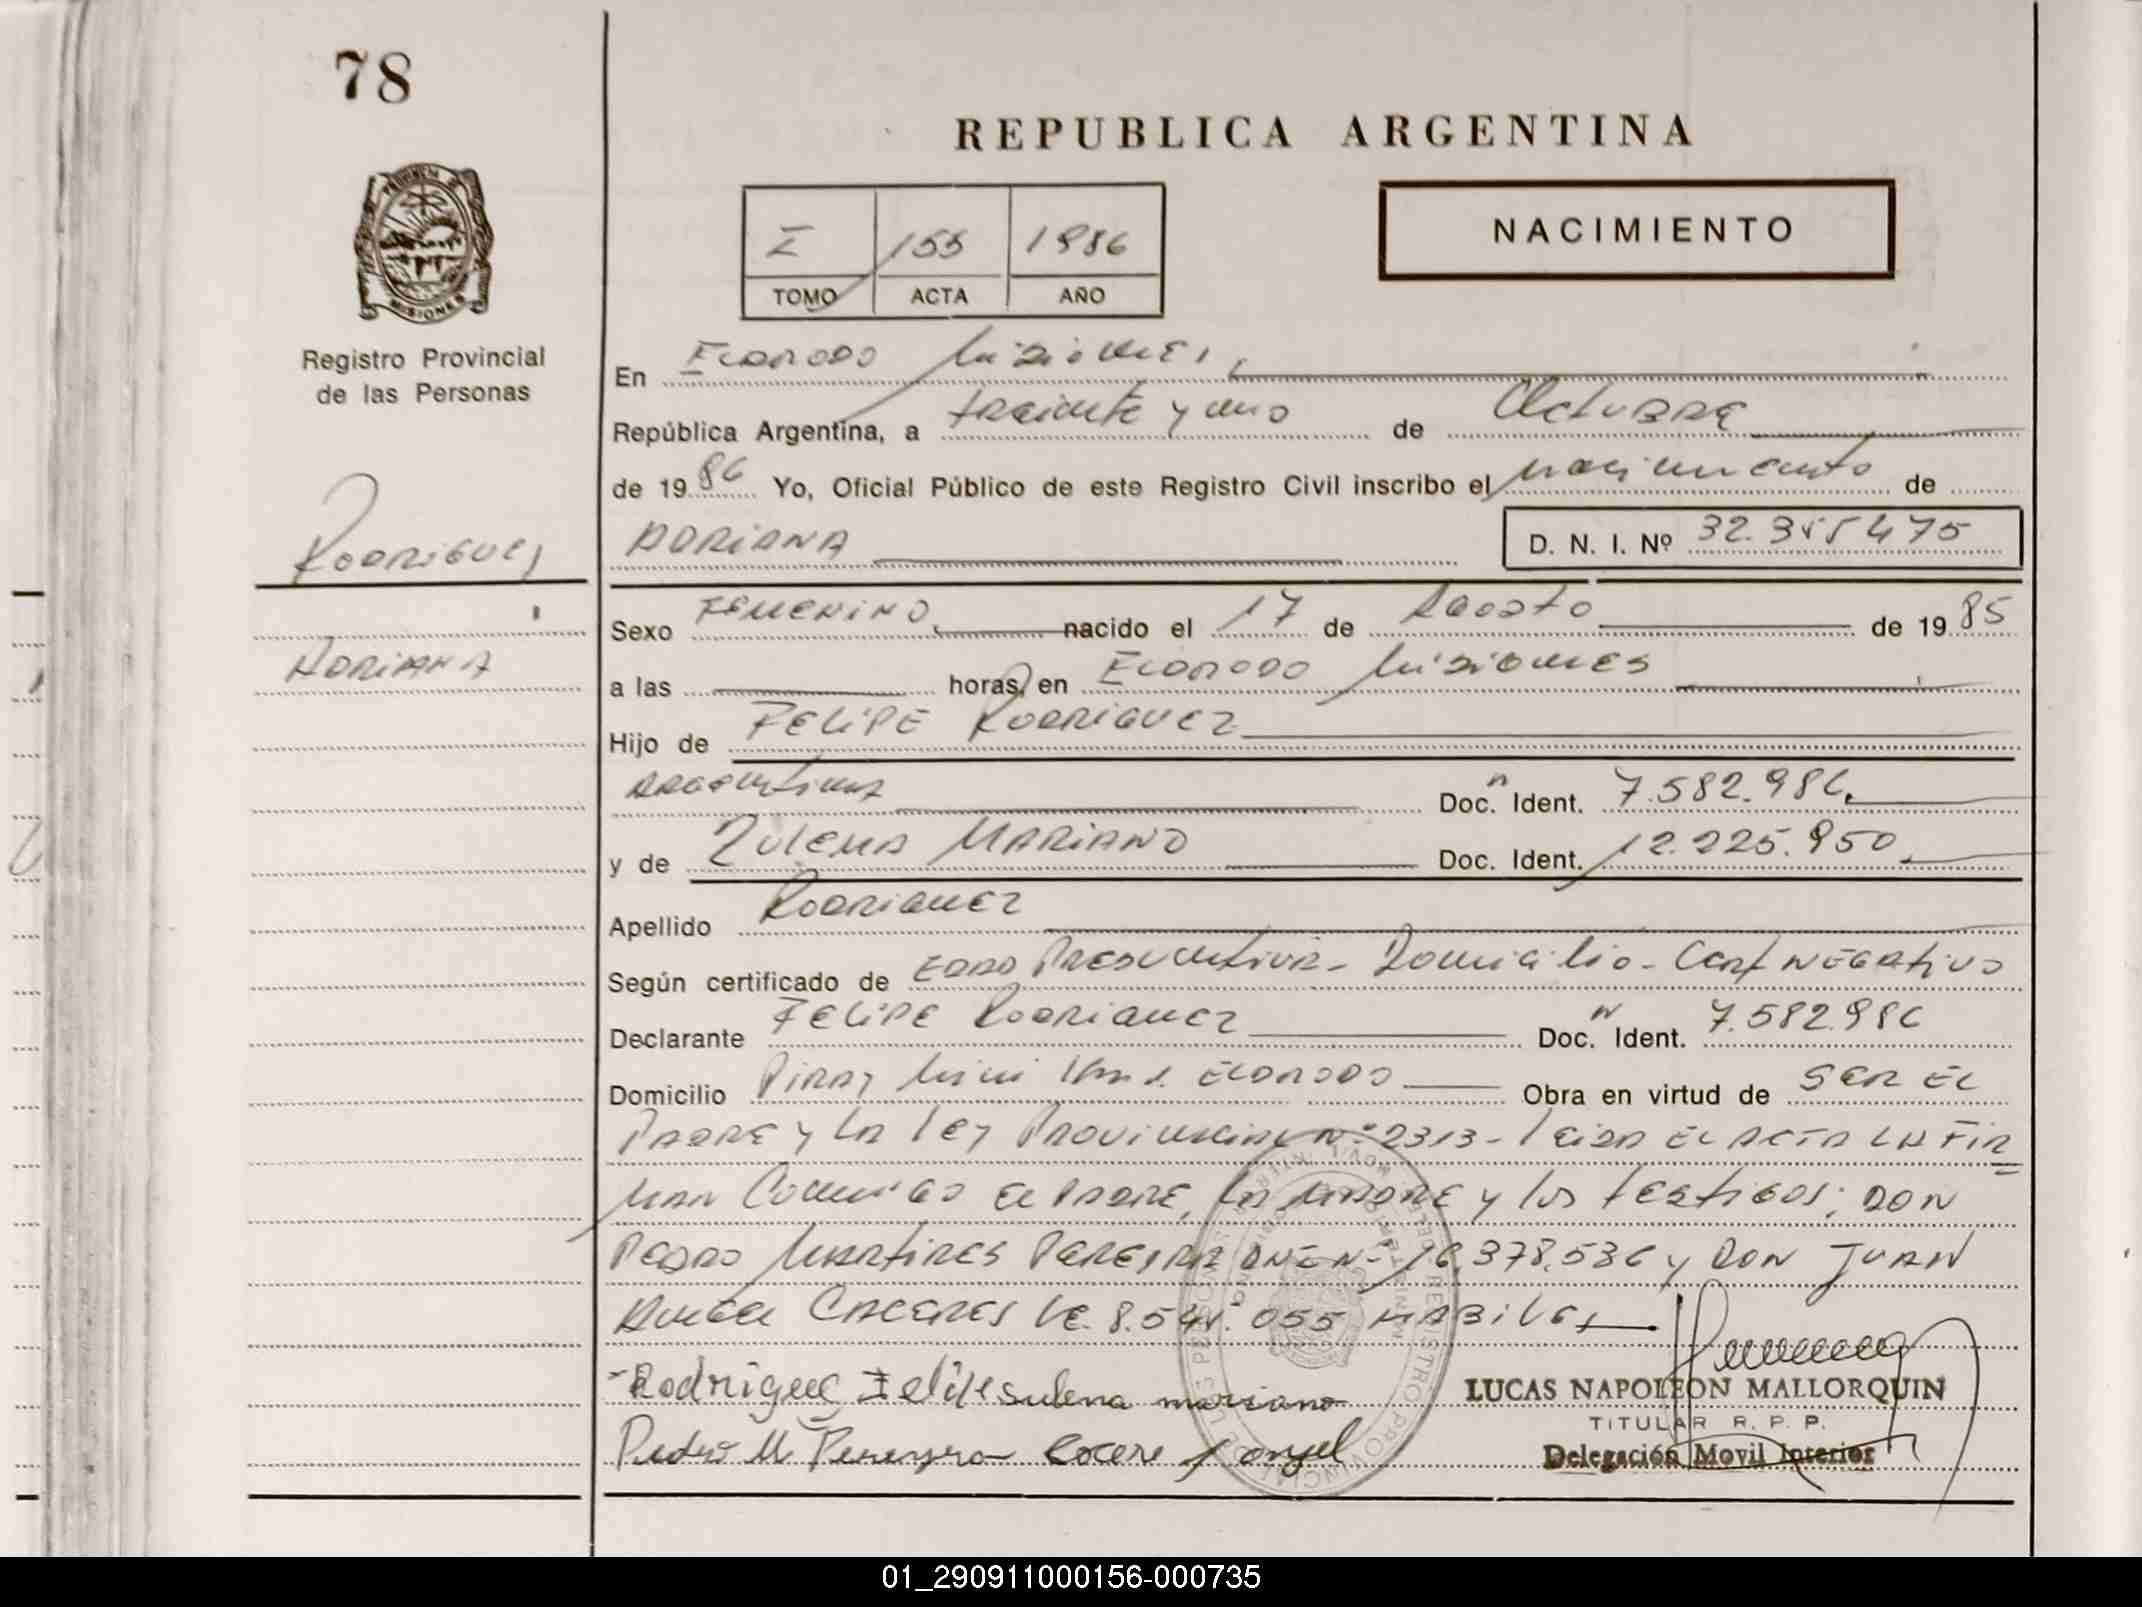 78
REPUBLICA ARGENTINA
I 155 1986
TOMO ACTA AÑO
NACIMIENTO
PROVINCIA DE MISIONES
Registro Provincial
de las Personas
En Eldorado Misiones,
República Argentina, a treinta y uno de Octubre
de 1986 Yo, Oficial Público de este Registro Civil inscribo el nacimiento de
Rodriguez
ADRIANA D. N. I. Nº 32.355475
Sexo Femenino nacido el 17 de Agosto de 1985
Adriana
a las horas, en Eldorado Misiones
Hijo de Felipe Rodriguez
Argentina Doc. Ident. 7.582.986
y de Zulema Mariano Doc. Ident. 12.225.950
Apellido Rodriguez
Según certificado de Edad Presuntiva - Domicilio - Cert Negativo
Declarante Felipe Rodriguez Doc. Ident. 7.582.986
Domicilio Piray Mini Eldorado Obra en virtud de ser el
Padre y la ley Provincial Nº 2313 - leida el acta la fir
man conmigo el Padre, la Madre y los testigos; Don
Pedro Martires Pereyra DNI Nº 16.378.536 y Don Juan
Angel Caceres LE. 8.541.055 habiles
Rodrigue Felipe sulema mariano
Pedro M Pereyra Cacere J angel
LUCAS NAPOLEON MALLORQUIN
TITULAR R. P. P.
Delegación Movil Interior
01_290911000156-000735